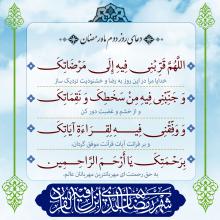 دعای روز دوم ماه رمضان
اللَّهُمَّ قَرِّبْنِي فِيهِ إِلَى مَرْضَاتِكَ
خدایا مرا در این روز به رضا و خشنودیت نزدیک ساز
وَ جَنِّبْنِي فِيهِ مِنْ سَخَطِكَ وَ نَقِمَاتِكَ
و از خشم و غضبت دور کن
وَ وَفِّقْنِي فِيهِ لِقِرَاءَةِ آيَاتِكَ
و بر قرائت آیات قرآنت موفق گردان،
بِرَحْمَتِكَ يَا أَرْحَمَ الرَّاحِمِينَ
به حق رحمتت ای مهربانترین مهربانان عالم.
شهر رمضان الذی انزل فیه القرآن